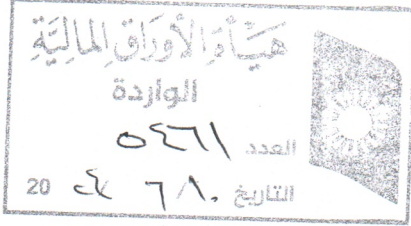 هَيْأَةُ الأَوْرَاقِ المَالِيَّةِ
الواردة
العدد ٥٤٦١
التاريخ ٦/١٠ 20